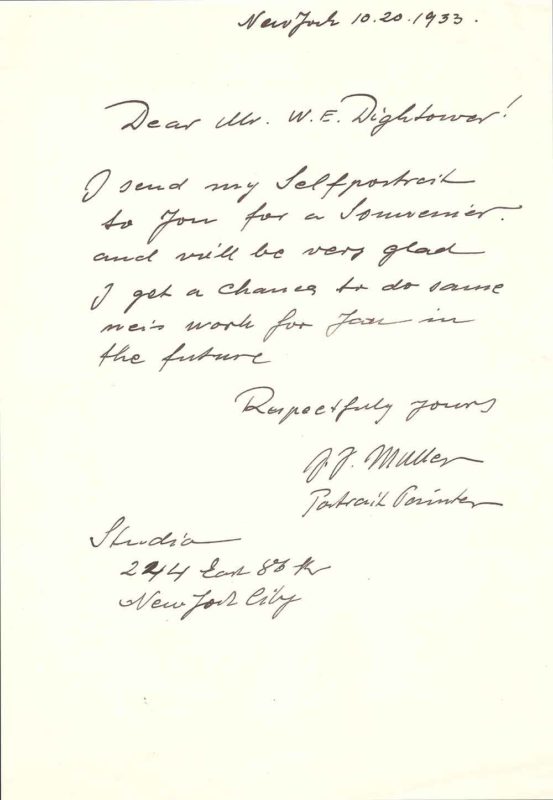 New York 10.20.1933.
Dear Mr. W. E. Dightower!
I send my Selfportrait
to You for a Souvenier.
and will be very glad
I get a chance to do same
neis work for You in
the future
Respectfuly yours
J. J. Muller
Portrait Painter
Studio
244 East 86 Str
New York City